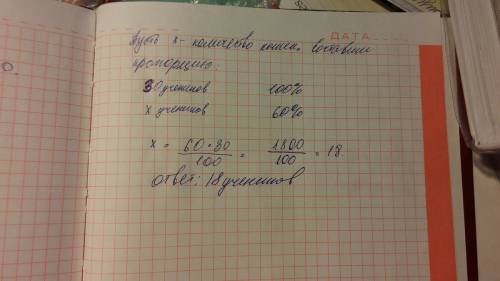 ДАТА
Пусть х - количество кошек. Составим
пропорцию:
30 учеников 100%
х учеников 60%
х = 60·30 / 100 = 1800 / 100 = 18
Ответ: 18 учеников